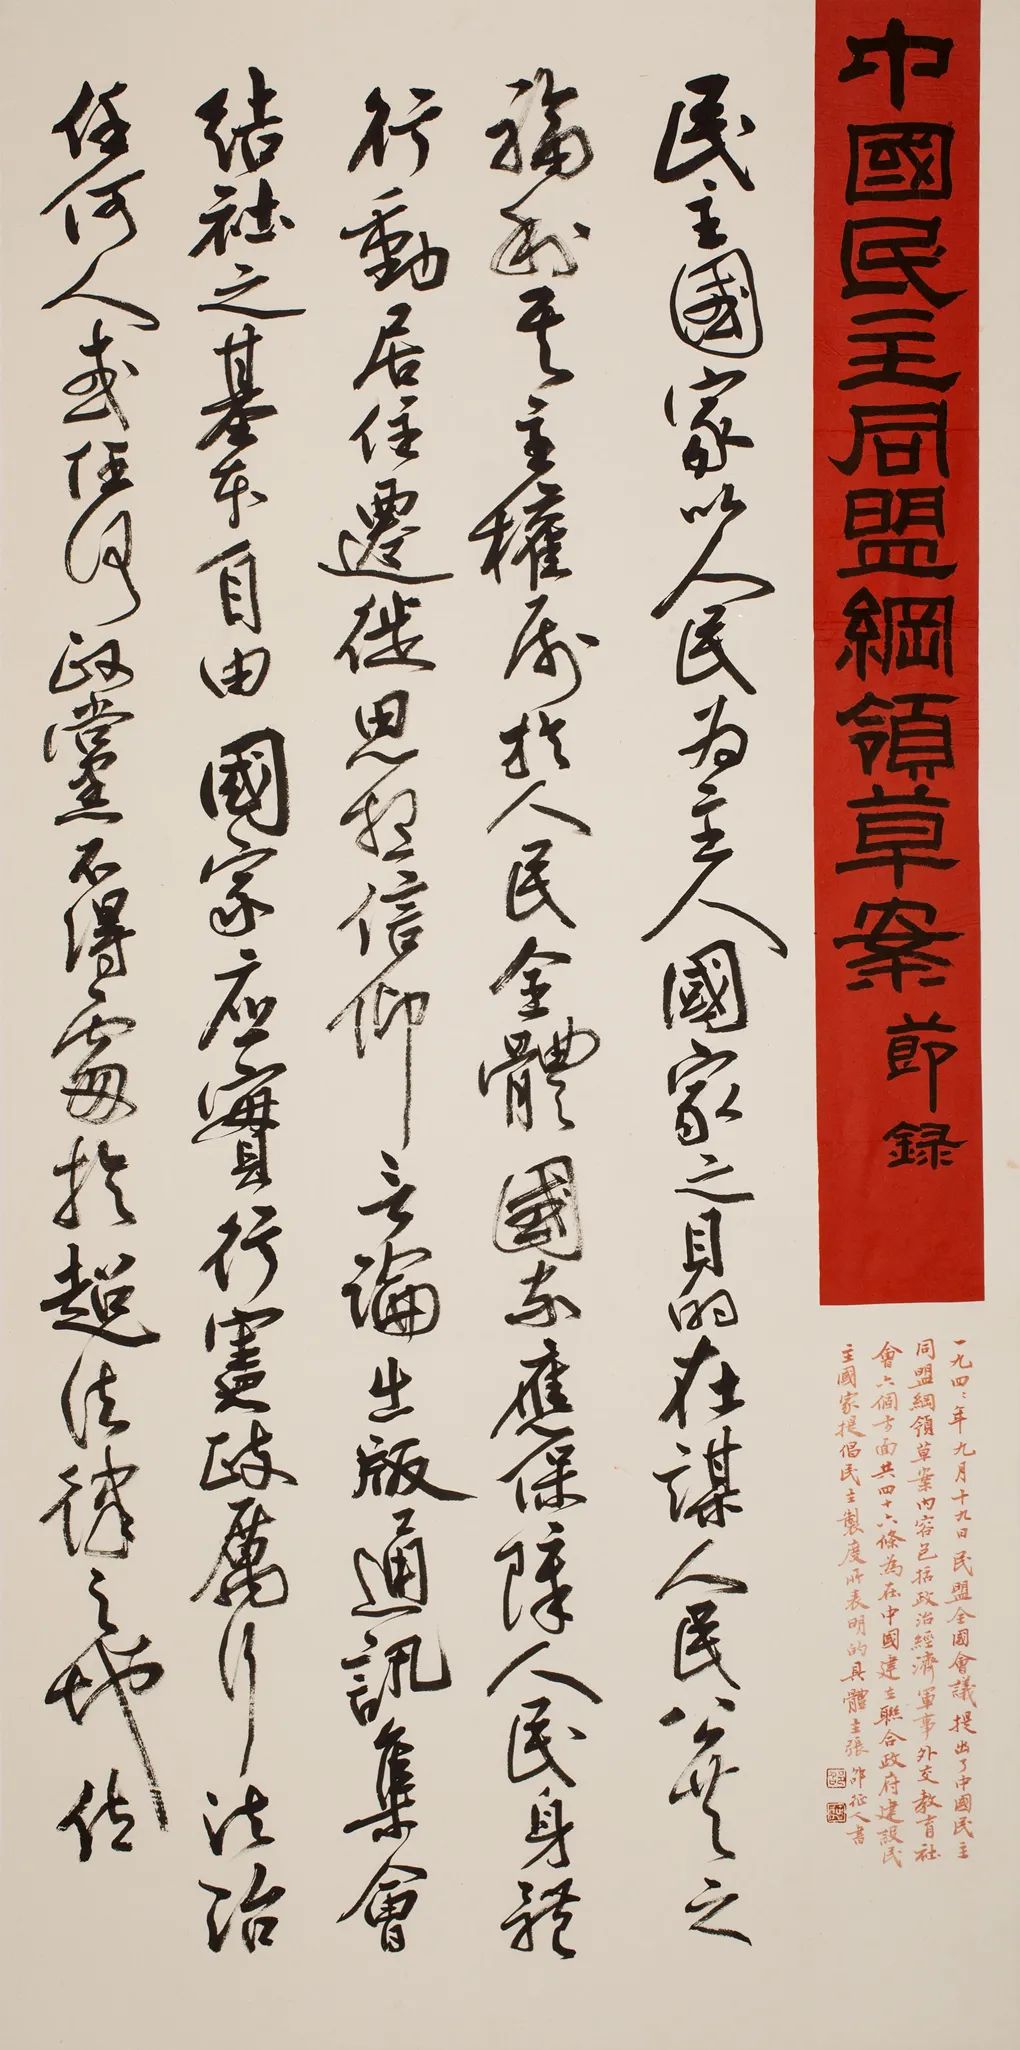 中國民主同盟綱領草案 節錄
一九四四年九月十九日民盟全國會議提出了中國民主
同盟綱領草案內容包括政治經濟軍事外交教育社
會六個方面共四十六條為在中國建立聯合政府建設民
主國家提倡民主製度所表明的具體主張 邵征人書
民主國家以人民為主人國家之目的在謀人民公共之
福利其主權屬於人民全體國家應保障人民身體
行動居住遷徙思想信仰言論出版通訊集會
結社之基本自由國家應實行憲政厲行法治
任何人或任何政黨不得處於超法律之地位